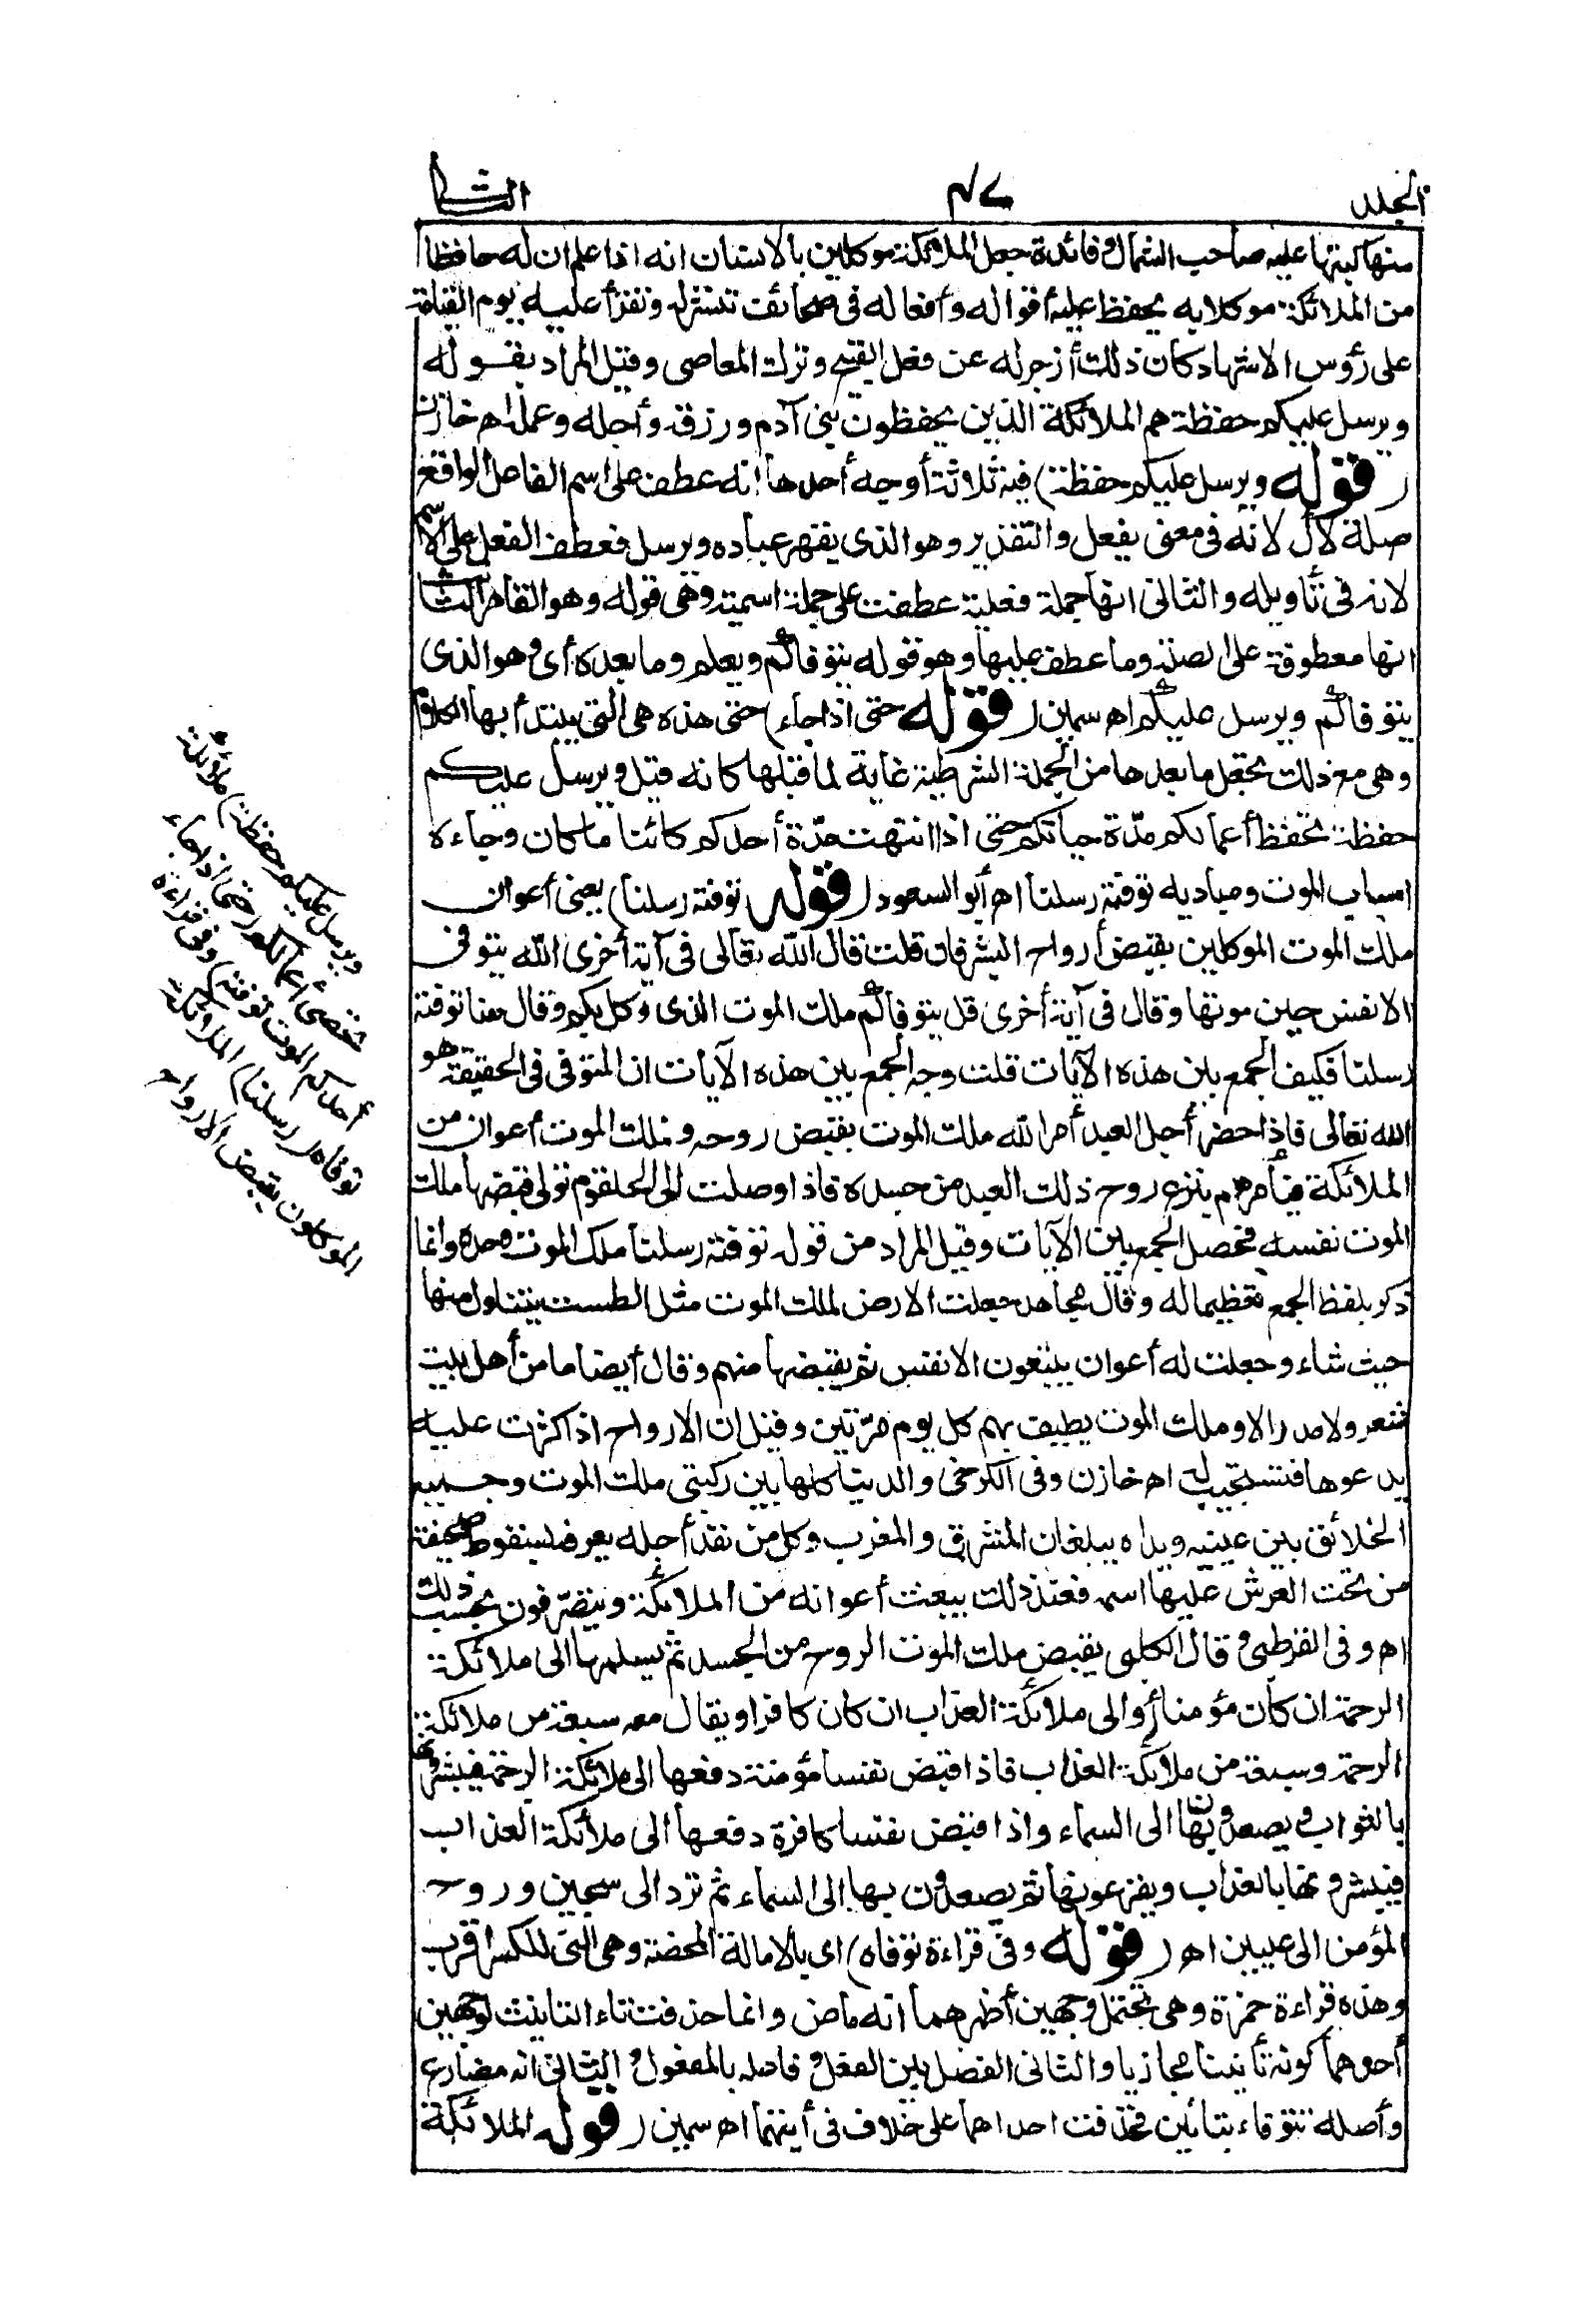 المجلد
٤٧
الثانى
منها كتبتها عليه صاحب الشمال وفائدة جعل الملائكة موكلين بالانسان انه اذا علم ان له حافظا
من الملائكة موكلا به يحفظ عليه أقواله وأفعاله فى صحائف تنشر له وتقرأ عليه يوم القيامة
على رؤس الاشهاد كان ذلك أزجر له عن فعل القبيح وترك المعاصى وقيل المراد بقوله
ويرسل عليكم حفظة هم الملائكة الذين يحفظون بنى آدم ورزقه وأجله وعمله اه خازن
(قوله ويرسل عليكم حفظة) فيه ثلاثة أوجه أحدها انه عطف على اسم الفاعل الواقع
صلة لأل لانه فى معنى يفعل والتقدير وهو الذى يقهر عباده ويرسل فعطف الفعل على الاسم
لانه فى تأويله والثانى انها جملة فعلية عطفت على جملة اسمية وهى قوله وهو القاهر الثالث
انها معطوفة على الصلة وما عطف عليها وهو قوله يتوفاكم ويعلم وما بعده أى وهو الذى
يتوفاكم ويرسل عليكم اه سمين (قوله حتى اذا جاء) حتى هذه هى التى يبتدأ بها الكلام
وهى مع ذلك تجعل ما بعدها من الجملة الشرطية غاية لما قبلها كانه قيل ويرسل عليكم
حفظة تحفظ أعمالكم مدّة حياتكم حتى اذا انتهت مدّة أحدكم كائنا ما كان وجاءه
اسباب الموت ومباديه توفته رسلنا اه أبو السعود (قوله توفته رسلنا) يعنى أعوان
ملك الموت الموكلين بقبض أرواح البشر فان قلت قال الله تعالى فى آية أخرى الله يتوفى
الانفس حين موتها وقال فى آية أخرى قل يتوفاكم ملك الموت الذى وكل بكم وقال هنا توفته
رسلنا فكيف الجمع بين هذه الآيات قلت وجه الجمع بين هذه الآيات ان المتوفى فى الحقيقة هو
الله تعالى فاذا حضر أجل العبد أمر الله ملك الموت بقبض روحه وملك الموت أعوان من
الملائكة فيأمرهم بنزع روح ذلك العبد من جسده فاذا وصلت الى الحلقوم تولى قبضها ملك
الموت نفسه فحصل الجمع بين الآيات وقيل المراد من قوله توفته رسلنا ملك الموت وحده وانما
ذكر بلفظ الجمع تعظيما له وقال مجاهد جعلت الارض لملك الموت مثل الطست يتناول منها
حيث شاء وجعلت له أعوان ينتزعون الانفس ثم يقبضها منهم وقال أيضا ما من أهل بيت
شعر ولا مدر الا وملك الموت يطيف بهم كل يوم مرّتين وقيل ان الارواح اذا كثرت عليه
يدعوها فتستجيب له اه خازن وفى الكرخى والدنيا كلها بين ركبتى ملك الموت وجميع
الخلائق بين عينيه ويداه يبلغان المشرق والمغرب وكل من نفد أجله يعرفه بسقوط صحيفة
من تحت العرش عليها اسمه فعند ذلك يبعث أعوانه من الملائكة ويتصرّفون بحسب ذلك
اه وفى القرطبى وقال الكلبى يقبض ملك الموت الروح من الجسد ثم يسلمها الى ملائكة
الرحمة ان كان مؤمنا أو الى ملائكة العذاب ان كان كافرا ويقال معه سبعة من ملائكة
الرحمة وسبعة من ملائكة العذاب فاذا قبض نفسا مؤمنة دفعها الى ملائكة الرحمة فيبشرونها
بالثواب ويصعدون بها الى السماء واذا قبض نفسا كافرة دفعها الى ملائكة العذاب
فيبشرونها بالعذاب ويفزعونها ثم يصعدون بها الى السماء ثم ترد الى سجين وروح
المؤمن الى عليين اه (قوله وفى قراءة توفاه) اى بالامالة المحضة وهى التى للكسر اقرب
وهذه قراءة حمزة وهى تحتمل وجهين أظهرهما انه ماض وانما حذفت تاء التانيث لوجهين
أحدهما كونه تأنيثا مجازيا والثانى الفصل بين الفعل وفاعله بالمفعول والثانى انه مضارع
وأصله تتوفاه بتائين فحذفت احداهما على خلاف فى أيتهما اه سمين (قوله الملائكة
ويرسل عليكم حفظة) ملائكة
تحصى أعمالكم (حتى اذا جاء
أحدكم الموت توفته) وفى قراءة
توفاه (رسلنا) الملائكة
الموكلون بقبض الارواح